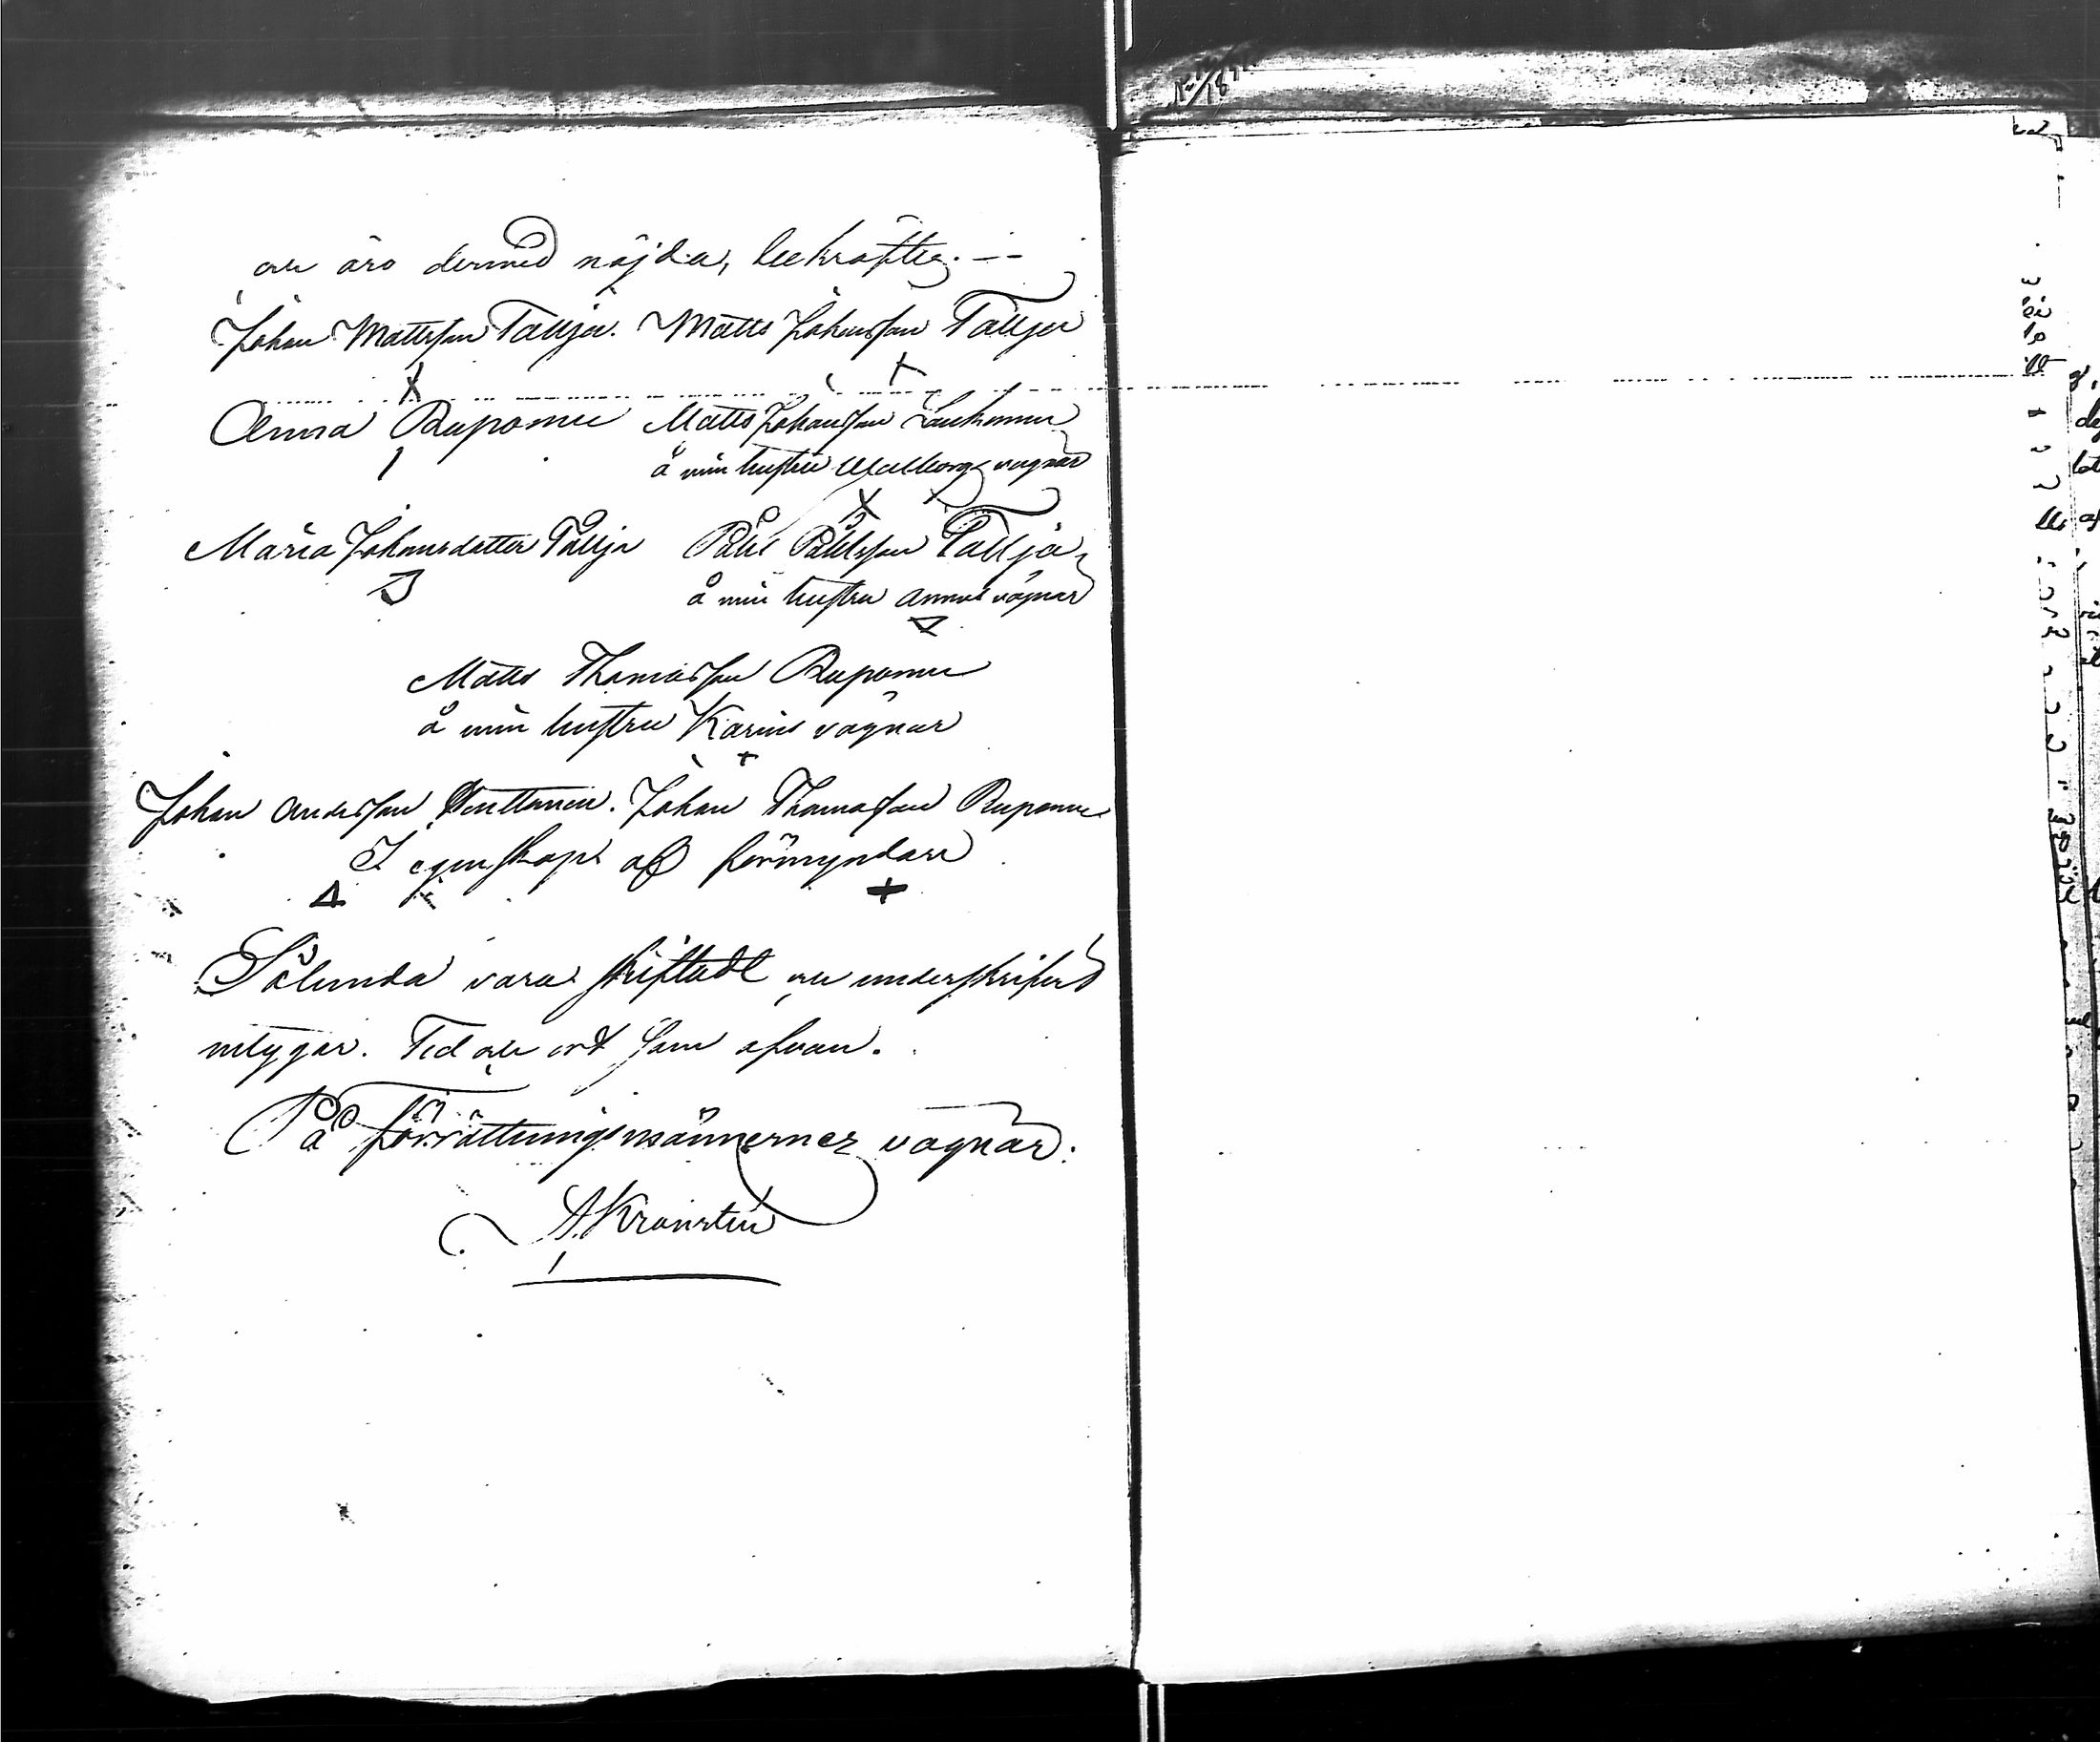 och äro dermed nöjda, bekräfta. –
Johan Mattsson Tallja. Matts Johansson Tallja
Anna Ruponen Matts Johansson Laukonen
å min hustru Walborgs vägnar
Maria Johansdotter Tallja Påhl Påhlsson Tallja
å min hustru Annas vägnar
Matts Thomasson Ruponen
å min hustru Karins vägnar
Johan Andersson Penttonen. Johan Thomasson Ruponen
I egenskap af förmyndare
Sålunda vara skiftadt och underskrifvet
intygar. Tid och ort som ofvan.
På förrättningsmännernes vägnar:
A. Kransten